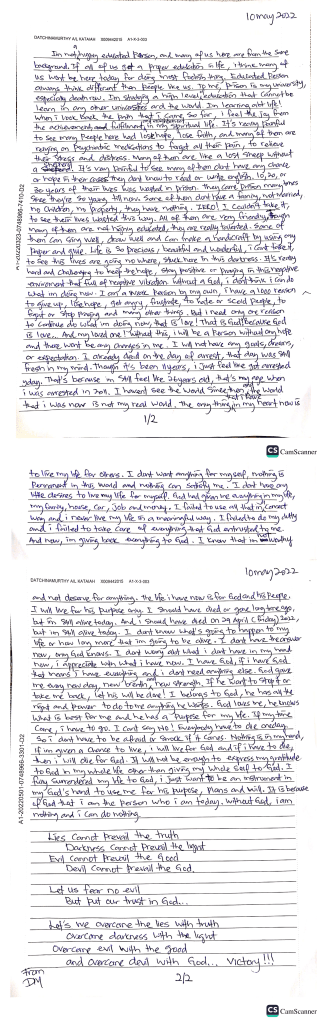 10 may 2022
DATCHINAMURTHY A/L KATAIAH S00#442015 A1-X-3-003
I'm not highly educated Person, and many of us here are from the same
background. If all of us get a Proper education in life, i think many of
us wont be here today for doing most foolish thing. Educated Person
always think different than people like us. To me, prison is my university,
especially death row. I'm studying a high level education that cannot be
learn in any other universities and the world. I'm learning about life!
When i look back the path that i came so far, i feel the joy from
the achievement and fulfilment in my spiritual life. It's really painful
to see many people here had lose hope, lose faith, and many of them are
relying on Psychiatric medications to forget all their pain, to relieve
their stress and distress. Many of them are like a lost sheep without
a shepherd. It's very painful to see many of them dont have any chance
or hope in their cases. They dont know to read or write english. 10, 20, or
30 years of their lives was wasted in Prison. They came Prison many times
since they're so young till now. Some of them dont have a family, not married,
no children, no property, they have nothing, ZERO! I couldnt take it,
to see their lives wasted this way. All of them are very friendly, though
many of them are not highly educated, they are really talented. Some of
them can sing well, draw well and can make a handicraft by using my
Paper and glue. Life is so precious, beautiful and wonderful, i cant take it,
to see this lives are going no where, stuck here in this darkness. It's really
hard and challenging to keep the hope, stay positive or praying in this negative
environment that full of negative vibration. Without a God, i dont think i can do
what im doing now. I am a
to give up, lose hope, get angry, frustrate, to hate or scold people, to
fight or stop praying and many other things. But i need only one reason
to continue do what im doing now that is love! That is God! because God
is love. And my loved one! without this, i will be a Person without any hope
and there wont be any changes in me. I will not have any goals, dreams,
or expectation. I already died on the day of arrest, that day was still
fresh in my mind. Though it's been 11 years, i just feel like got arrested
today. That's because im still feel like 26 years old, that's my age when
i was arrested in 2011. I havent see the world since then, the world
that i was now is not my real world. The only thing that i have in my heart now is
1/2
CS CamScanner
10 may 2022
to live my life for others. I dont want anything for myself, nothing is
Permanent in this world and nothing can satisfy me. I dont have any
little desires to live my life for myself. God had given me everything in my life,
my family, house, car, job and money. I failed to use all that in correct
way, and i never live my life in a meaningful way. I failed to do my duty
and i failed to take care of everything that God entrusted to me.
And now, im giving back everything to God. I know that im not worthy
DATCHINAMURTHY A/L KATAIAH S00#442015 A1-X-3-003
10 may 2022
and not deserve for anything. The life i have now is for God and his people.
I will live for his purpose only. I should have died or gone long time ago,
but im still alive today. And i should have died on 29 April (Friday) 2022,
but im still alive today. I dont know what's going to happen to my
life or how long more that im going to be alive. I dont have the answer
now, only God knows. I dont worry about what i dont have in my hand
now, i appreciate with what i have now. I have God, if i have God
that means i have everything and i dont need anything else. God gave
me every new day, new breath, and new strength. If he want to stop it or
take me back, let his will be done! I belongs to God, he has all the
right and power to do to me anything he wants. God loves me, he knows
what is best for me and he has a Purpose for my life. If my time
come, i have to go. I cant say No! Everybody have to die one day.
So i dont have to be afraid or shock if it comes. Nothing is in my hand,
if im given a chance to live, i will live for God and if i have to die,
then i will die for God. It will not be enough to express my gratitude
to God in my whole life other than giving my whole soul to God. I
fully surrendered my life to God, i just want to be an instrument in
my God's hand to use me for his purpose, plans and will. It is because
of God that i am the person who i am today. Without God, i am
nothing and i can do nothing.
Lies Cannot Prevail the truth
Darkness Cannot Prevail the light
Evil cannot Prevail the Good
Devil cannot Prevail the God.
Let us fear no evil
But put our trust in God...
Let's we overcome the lies with truth
overcome darkness with the light
overcome evil with the good
and overcome devil with God... Victory!!!
From
DM
2/2
CS CamScanner